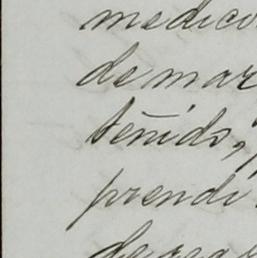 medico
de mar
teñido,
prendi